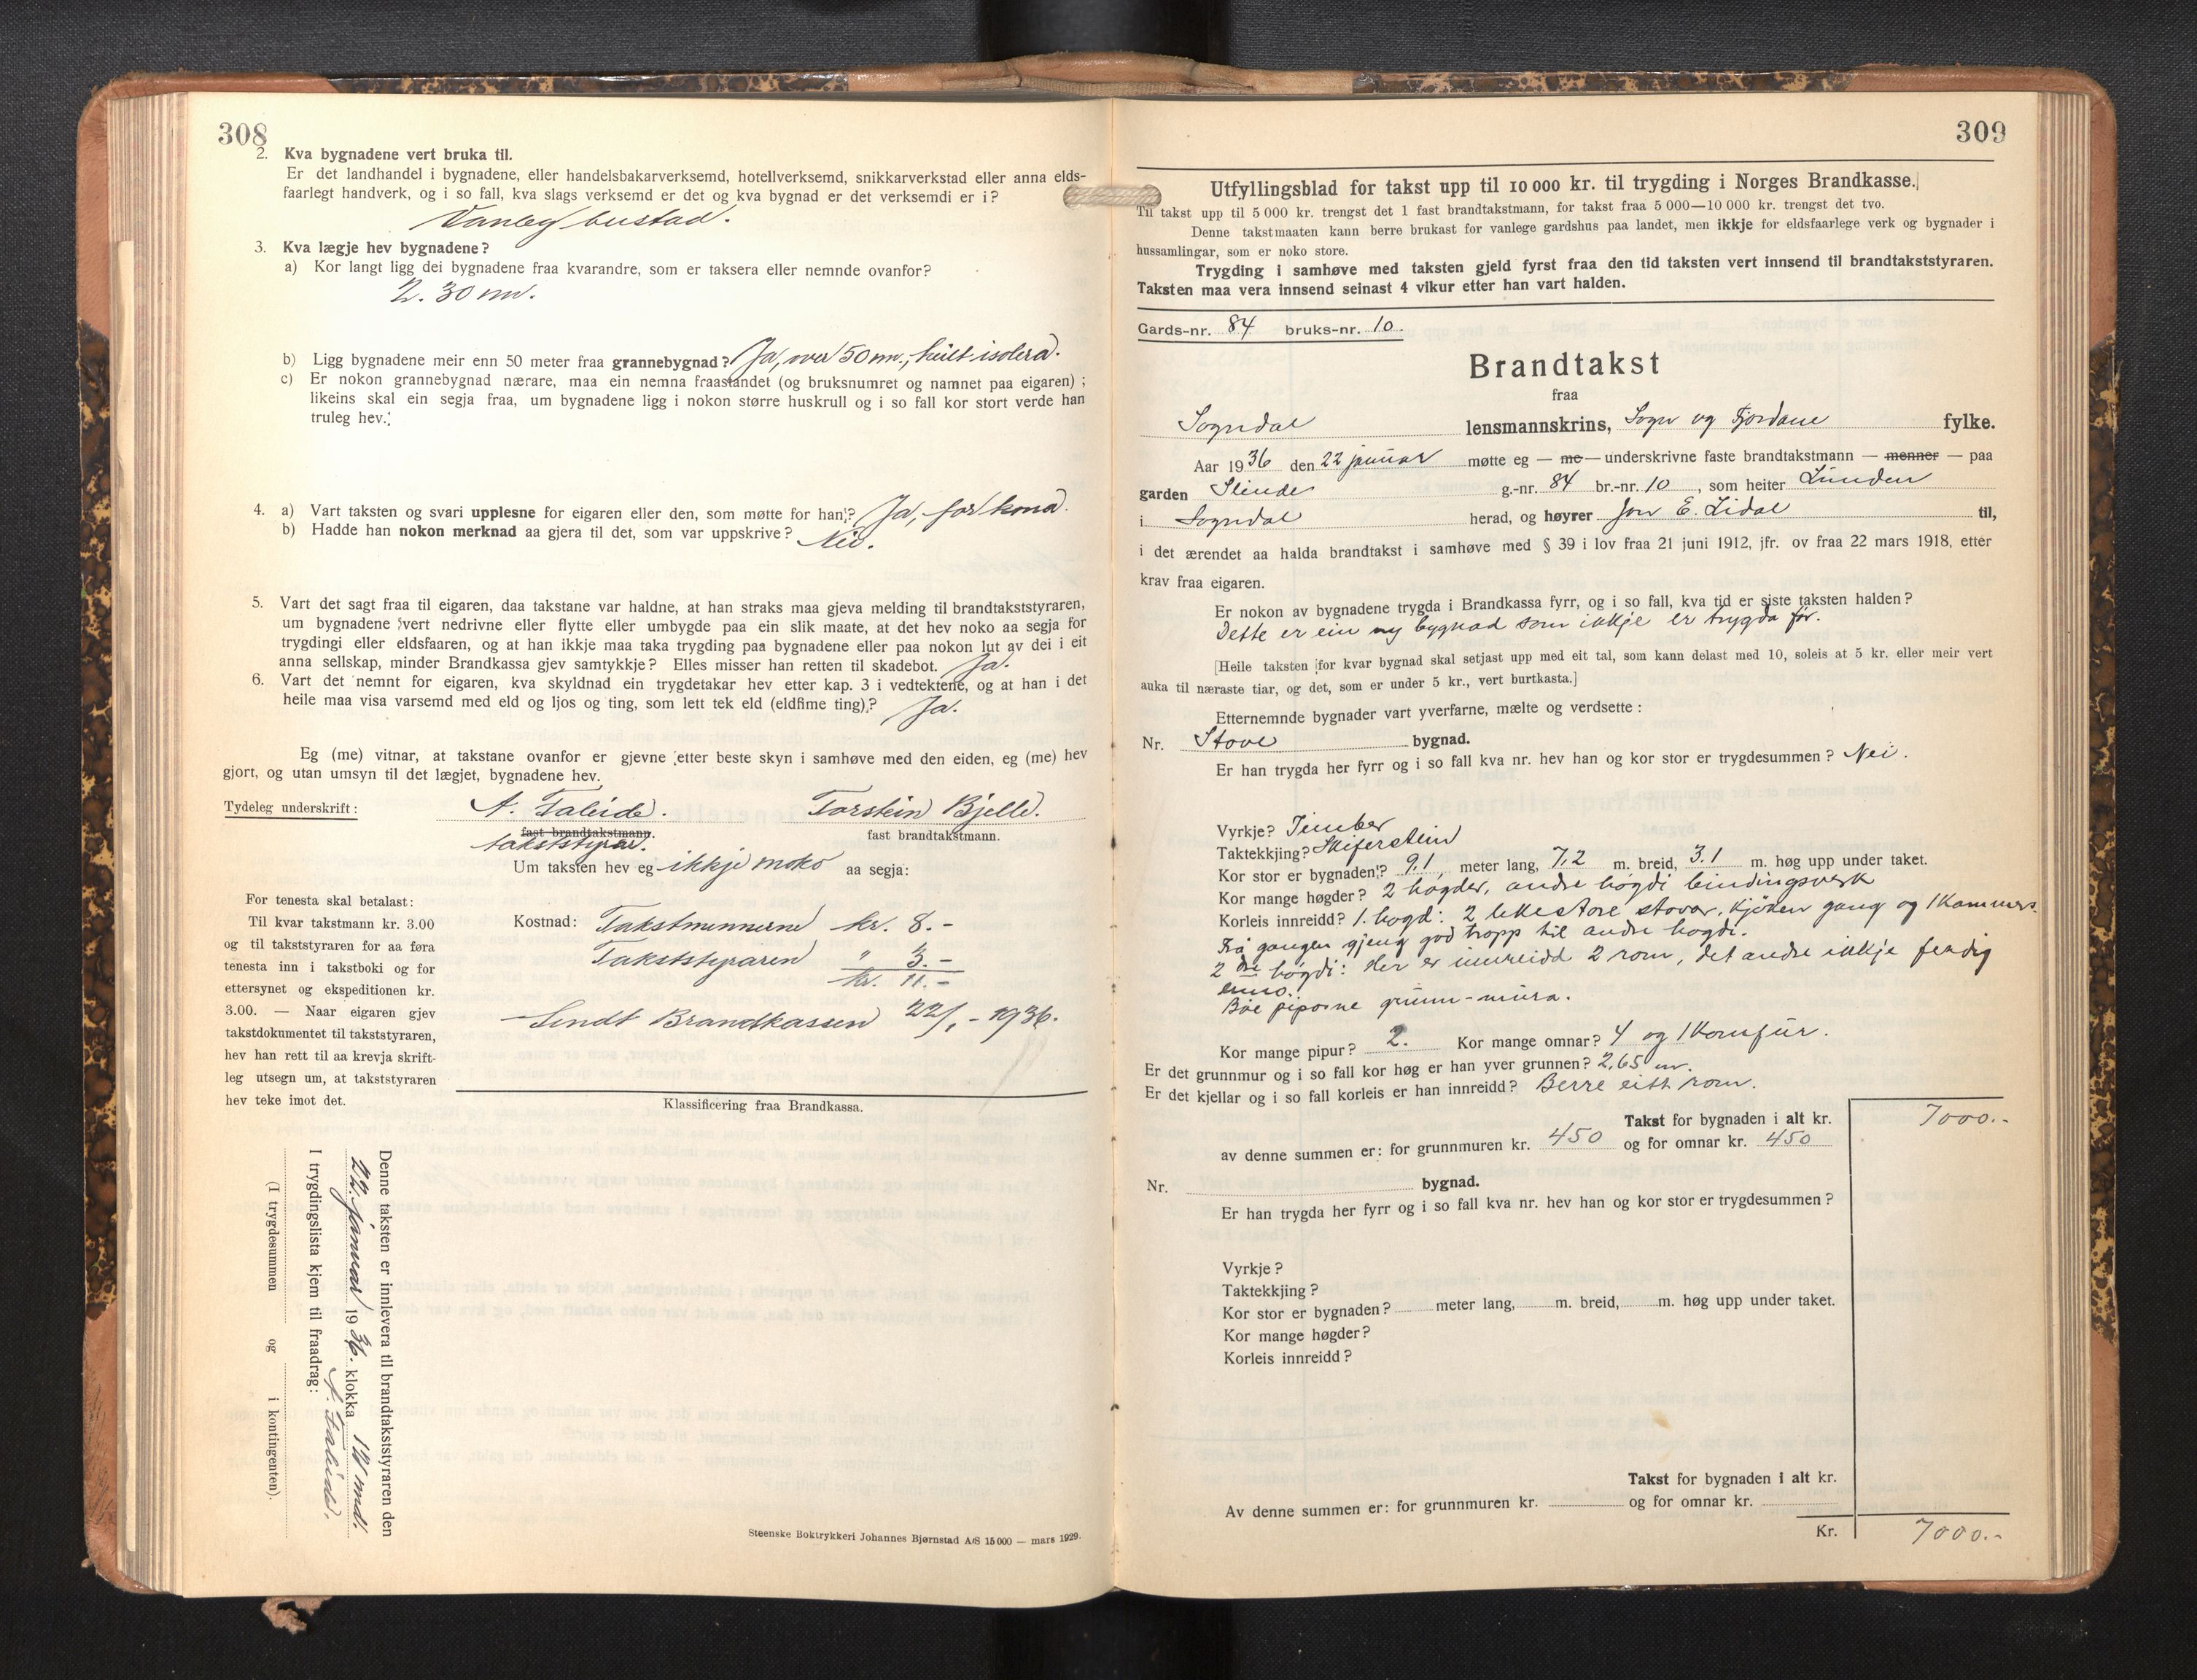 308
2. Kva bygnadene vert bruka til.
Er det landhandel i bygnadene, eller handelsbakarverksemd, hotellverksemd, snikkarverkstad eller anna elds-
faarlegt handverk, og i so fall, kva slags verksemd er det og kva bygnad er det verksemdi er i?
Vanleg bustad.
3. Kva lægje hev bygnadene?
a) Kor langt ligg dei bygnadene fraa kvarandre, som er taksera eller nemnde ovanfor?
2. 30 m.
b) Ligg bygnadene meir enn 50 meter fraa grannebygnad? Ja, over 50 m., heilt isolera.
c) Er nokon grannebygnad nærare, maa ein nemna fraastandet (og bruksnumret og namnet paa eigaren);
likeins skal ein segja fraa, um bygnadene ligg i nokon større huskrull og i so fall kor stort verde han
truleg hev.
4. a) Vart taksten og svari upplesne for eigaren eller den, som møtte for han? Ja, for kona.
b) Hadde han nokon merknad aa gjera til det, som var uppskrive? Nei.
5. Vart det sagt fraa til eigaren, daa takstane var haldne, at han straks maa gjeva melding til brandtakststyraren,
um bygnadene vert nedrivne eller flytte eller umbygde paa ein slik maate, at det hev noko aa segja for
trygdingi eller eldsfaaren, og at han ikkje maa taka trygding paa bygnadene eller paa nokon lut av dei i eit
anna sellskap, minder Brandkassa gjev samtykkje? Elles misser han retten til skadebot. Ja.
6. Vart det nemnt for eigaren, kva skyldnad ein trygdetakar hev etter kap. 3 i vedtektene, og at han i det
heile maa visa varsemd med eld og ljos og ting, som lett tek eld (eldfime ting)? Ja.
Eg (me) vitnar, at takstane ovanfor er gjevne etter beste skyn i samhøve med den eiden, eg (me) hev
gjort, og utan umsyn til det lægjet, bygnadene hev.
Tydeleg underskrift: A. Faleide. Torstein Bjelle.
fast brandtakstmann. fast brandtakstmann.
takststyrar.
Um taksten hev eg ikkje noko aa segja:
For tenesta skal betalast:
Til kvar takstmann kr. 3.00
og til takststyraren for aa føra
tenesta inn i takstboki og for
ettersynet og ekspeditionen kr.
3.00. — Naar eigaren gjev
takstdokumentet til takststyraren,
hev han rett til aa krevja skrift-
leg utsegn um, at takststyraren
hev teke imot det.
Kostnad: Takstmennene kr. 8.-
Takststyraren " 3.-
kr. 11.-
Sendt Brandkassen 22/1 - 1936.
Klassificering fraa Brandkassa.
Denne taksten er innlevera til brandtakststyraren den
22. januar 1936. klokka 12 mdl.
A. Faleide.
I trygdingslista kjem til fraadrag:
(I trygdesummen og i kontingenten).
Steenske Boktrykkeri Johannes Bjørnstad A/S 15 000 — mars 1929.
309
Utfyllingsblad for takst upp til 10 000 kr. til trygding i Norges Brandkasse.
Til takst upp til 5 000 kr. trengst det 1 fast brandtakstmann, for takst fraa 5 000—10 000 kr. trengst det tvo.
Denne takstmaaten kann berre brukast for vanlege gardshus paa landet, men ikkje for eldsfaarlege verk og bygnader i
hussamlingar, som er noko store.
Trygding i samhøve med taksten gjeld fyrst fraa den tid taksten vert innsend til brandtakststyraren.
Taksten maa vera innsend seinast 4 vikur etter han vart halden.
Gards-nr. 84 bruks-nr. 10.
Brandtakst
fraa
Sogndal lensmannskrins, Sogn og Fjordane fylke.
Aar 1936 den 22 januar møtte eg — me — underskrivne faste brandtakstmann — menner — paa
garden Slinde g.-nr. 84 br.-nr. 10, som heiter Lunden
i Sogndal herad, og høyrer Jon E. Lidal til,
i det ærendet aa halda brandtakst i samhøve med § 39 i lov fraa 21 juni 1912, jfr. ov fraa 22 mars 1918, etter
krav fraa eigaren.
Er nokon av bygnadene trygda i Brandkassa fyrr, og i so fall, kva tid er siste taksten halden?
Dette er ein ny bygnad som ikkje er trygda før.
[Heile taksten for kvar bygnad skal setjast upp med eit tal, som kann delast med 10, soleis at 5 kr. eller meir vert
auka til næraste tiar, og det, som er under 5 kr., vert burtkasta.]
Etternemnde bygnader vart yverfarne, mælte og verdsette:
Nr. Stove bygnad.
Er han trygda her fyrr og i so fall kva nr. hev han og kor stor er trygdesummen? Nei.
Vyrkje? Timber
Taktekkjing? Skiferstein
Kor stor er bygnaden? 9.1, meter lang, 7.2 m. breid, 3.1 m. høg upp under taket.
Kor mange høgder? 2 høgder, andre høgdi bindingsverk
Korleis innreidd? 1. høgd: 2 likestore stover, kjøken gang og 1 kammers.
Frå gangen gjeng god tropp til andre høgdi.
2 dre høgdi: Her er innreidd 2 rom, det andre ikkje ferdig
enno.
Båe piporne grunn-mura.
Kor mange pipur? 2. Kor mange omnar? 4 og 1 Komfur.
Er det grunnmur og i so fall kor høg er han yver grunnen? 2,65 m.
Er det kjellar og i so fall korleis er han innreidd? Berre eitt rom.
Takst for bygnaden i alt kr. 7000.-
av denne summen er: for grunnmuren kr. 450 og for omnar kr. 450
Nr. bygnad.
Er han trygda her fyrr og i so fall kva nr. hev han og kor stor er trygdesummen?
Vyrkje?
Taktekkjing?
Kor stor er bygnaden? meter lang, m. breid, m. høg upp under taket.
Kor mange høgder?
Korleis innreidd?
Takst for bygnaden i alt kr.
Av denne summen er: for grunnmuren kr. og for omnar kr.
Kr. 7000.-